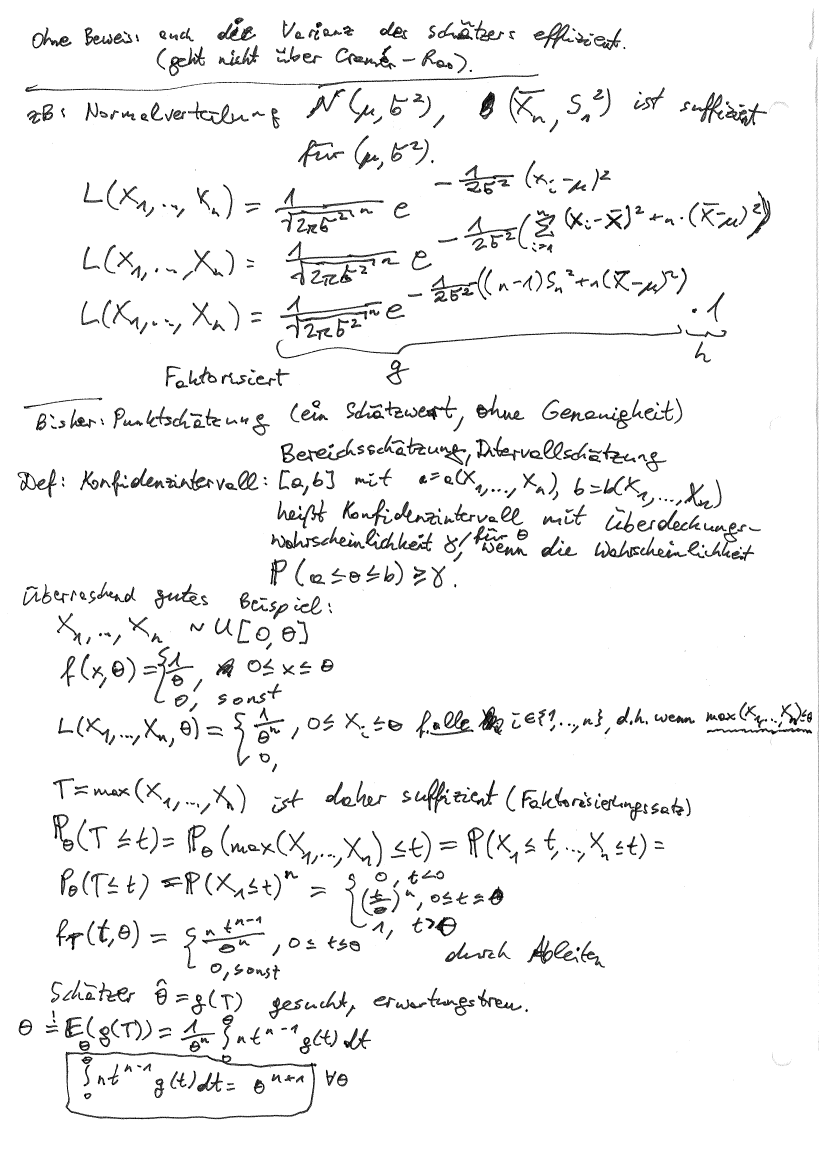 Ohne Beweis: auch die Varianz des Schätzers effizient.
(geht nicht über Cramér-Rao).
zB: Normalverteilung N(μ,σ²), (X̄ₙ, Sₙ²) ist suffizient
für (μ,σ²).
L(X₁,..,Xₙ) = 1/√(2πσ²)ⁿ e^(-1/(2σ²) (xᵢ-μ)²)
L(X₁,..,Xₙ) = 1/√(2πσ²)ⁿ e^(-1/(2σ²) (∑ᵢ₌₁ⁿ (Xᵢ-X̄)² + n·(X̄-μ)²))
L(X₁,..,Xₙ) = 1/√(2πσ²)ⁿ e^(-1/(2σ²) ((n-1)Sₙ² + n(X̄-μ)²)) · 1
Faktorisiert g h
Bisher: Punktschätzung (ein Schätzwert, ohne Genauigkeit)
Bereichsschätzung, Intervallschätzung
Def: Konfidenzintervall: [a,b] mit a=a(X₁,...,Xₙ), b=b(X₁,...,Xₙ)
heißt Konfidenzintervall mit Überdeckungs-
wahrscheinlichkeit γ, für θ wenn die Wahrscheinlichkeit
ℙ(a≤θ≤b) ≥ γ.
Überraschend gutes Beispiel:
X₁,..,Xₙ ~ U[0,θ]
f(x,θ) = { 1/θ, 0≤x≤θ
0, sonst
L(X₁,...,Xₙ,θ) = { 1/θⁿ, 0≤Xᵢ≤θ f. alle i∈{1,..,n}, d.h. wenn max(X₁,..,Xₙ)≤θ
0,
T=max(X₁,...,Xₙ) ist daher suffizient (Faktorisierungssatz)
ℙ_θ(T≤t) = ℙ_θ(max(X₁,..,Xₙ)≤t) = ℙ(X₁≤t,..,Xₙ≤t) =
P_θ(T≤t) = ℙ(X₁≤t)ⁿ = { 0, t<0
(t/θ)ⁿ, 0≤t≤θ
1, t>θ
f_T(t,θ) = { n tⁿ⁻¹/θⁿ, 0≤t≤θ durch Ableiten
0, sonst
Schätzer θ̂=g(T) gesucht, erwartungstreu.
θ =! E_θ(g(T)) = 1/θⁿ ∫₀^θ n tⁿ⁻¹ g(t) dt
∫₀^θ n tⁿ⁻¹ g(t) dt = θⁿ⁺¹ ∀θ